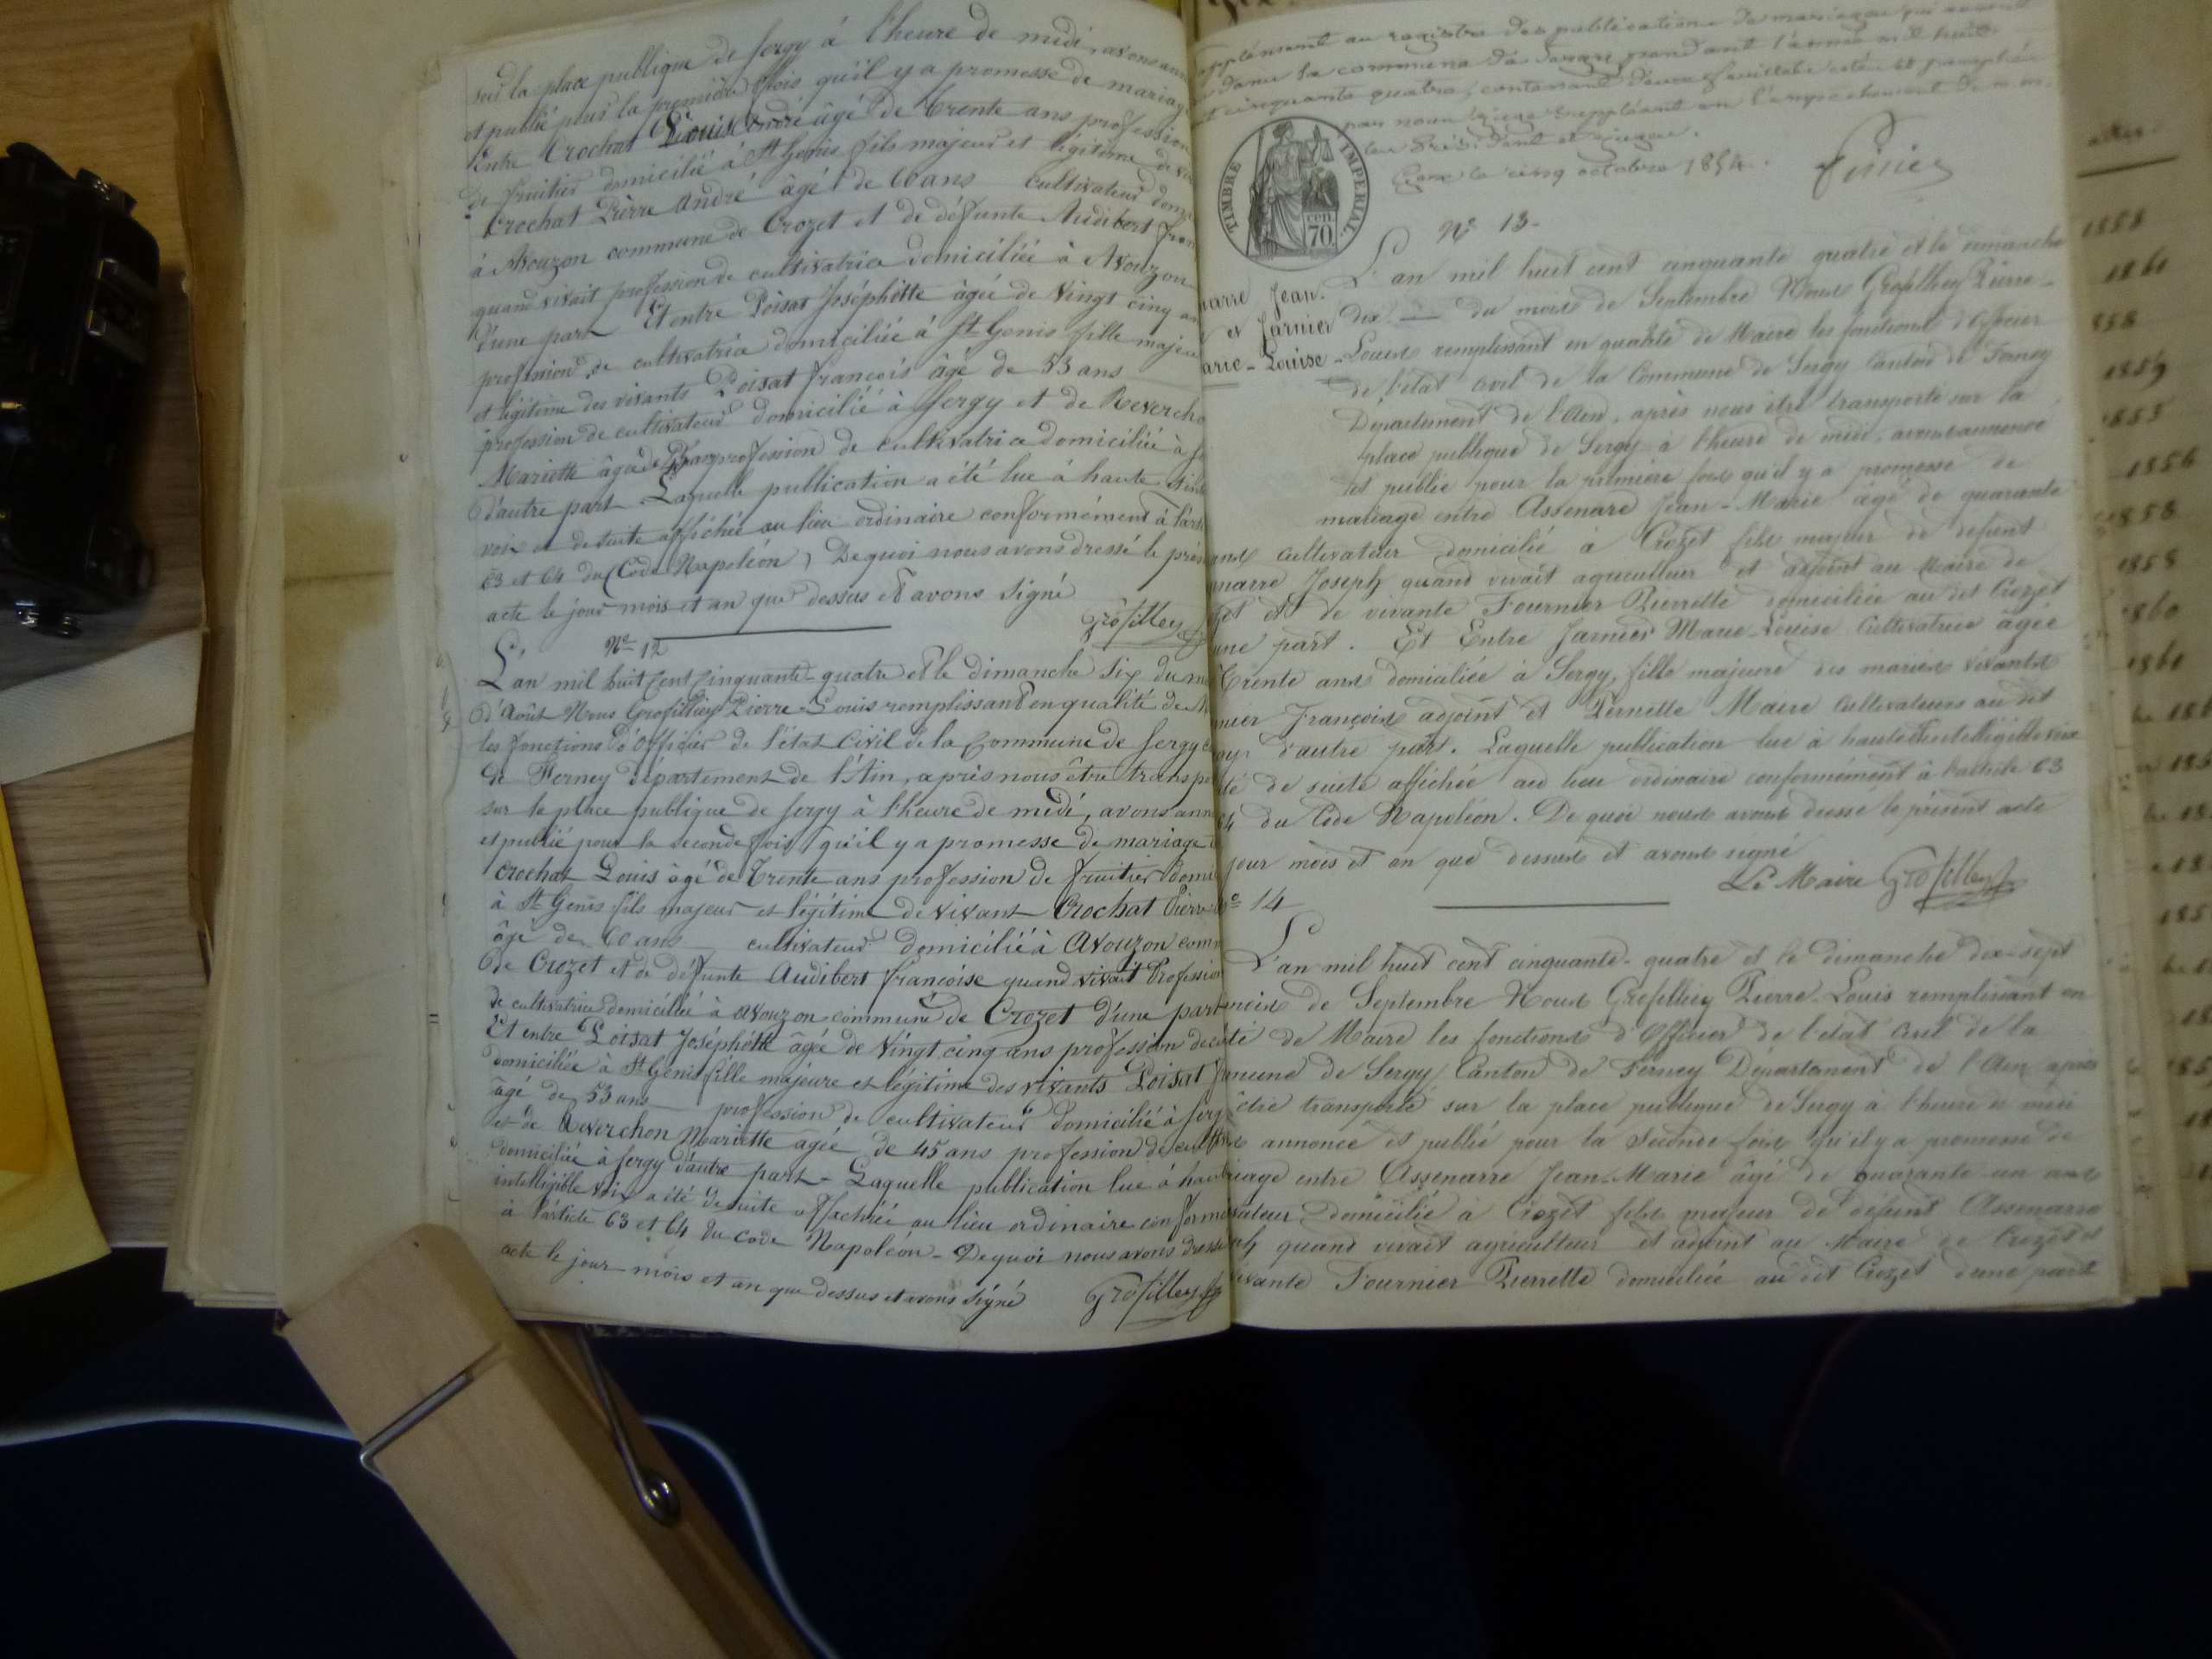 sur la place publique de Sergy à l'heure de midi, avons ann
et publié pour la première fois qu'il y a promesse de mariage
Entre Crochat Louis André âgé de trente ans profession
de fruitier domicilié à St Genis fils majeur et légitime de viv
Crochat Pierre André âgé de 60 ans cultivateur domi
à Avouzon commune de Crozet et de défunte Audibert fran
quand vivait profession de cultivatrice domiciliée à Avouzon
d'une part Et entre Poisat Joséphette âgée de Vingt cinq an
profession de cultivatrice domiciliée à St Genis fille majeu
et légitime des vivants Poisat françois âgé de 53 ans
profession de cultivateur domicilié à Sergy et de Revercho
Mariette âgée de profession de cultivatrice domiciliée à Se
d'autre part Laquelle publication a été lue à haute
voix et de suite affichée au lieu ordinaire conformément à l'art
63 et 64 du Code Napoléon, De quoi nous avons dressé le prés
acte le jour mois et an que dessus et avons signé
Grosfilley
No 12
L'an mil huit cent cinquante-quatre et le dimanche six du m
d'Août Nous Grosfilley Pierre-Louis remplissant en qualité de M
les fonctions d'Officier de l'état Civil de la Commune de Sergy c
de Ferney département de l'Ain, après nous être transpo
sur la place publique de Sergy à l'heure de midi, avons ann
et publié pour la seconde fois qu'il y a promesse de mariage
Crochat Louis âgé de trente ans profession de fruitier domi
à St Genis fils majeur et légitime de vivant Crochat Pierre
âgé de 60 ans cultivateur domicilié à Avouzon comm
de Crozet et de défunte Audibert françoise quand vivait Profession
de cultivatrice domiciliée à Avouzon commune de Crozet d'une part
Et entre Poisat Joséphette âgée de Vingt cinq ans profession de
domiciliée à St Genis fille majeure et légitime des vivants Poisat
âgé de 53 ans profession de cultivateur domicilié à Serg
et de Reverchon Mariette âgée de 45 ans profession de cult
domiciliée à Sergy d'autre part - Laquelle publication lue à hau
intelligible voix a été de suite affichée au lieu ordinaire conform
à l'article 63 et 64 du Code Napoléon - De quoi nous avons dressé
acte le jour mois et an que dessus et avons signé Grosfilley
au registre des publications de mariage qui
dans la commune de Sergy pendant l'année mil huit
cinquante quatre, contenant
par nous juge suppléant en l'empêchement de m.m.
les Président et juges.
Gex le cinq octobre 1854.
TIMBRE IMPERIAL.
70 cen
No 13-
arre Jean-
et Jarnier
arie-Louise-
L'an mil huit cent cinquante quatre et le dimanche
dix du mois de Septembre Nous Grosfilley Pierre-
Louis remplissant en qualité de Maire les fonctions d'officier
de l'état civil de la Commune de Sergy Canton de Ferney
Département de l'Ain, après nous être transporté sur la
place publique de Sergy à l'heure de midi, avons annoncé
et publié pour la première fois qu'il y a promesse de
mariage entre Assenare Jean-Marie âgé de quarante
ans cultivateur domicilié à Crozet fils majeur de défunt
narre Joseph quand vivait agriculteur et adjoint au Maire de
et de vivante Fournier Pierrette domiciliée au dit Crozet
une part. Et Entre Jarnier Marie-Louise Cultivatrice âgée
trente ans domiciliée à Sergy, fille majeure des mariés vivants
nier François adjoint et Pernette Maire Cultivateurs au dit
d'autre part. Laquelle publication lue à haute et intelligible voix
té de suite affichée au lieu ordinaire conformément à l'article 63
64 du Code Napoléon. De quoi nous avons dressé le présent acte
jour mois et an que dessus et avons signé
Le Maire Grosfilley
No 14
L'an mil huit cent cinquante-quatre et le dimanche dix-sept
mois de Septembre Nous Grosfilley Pierre-Louis remplissant en
ité de Maire les fonctions d'Officier de l'état Civil de la
mune de Sergy Canton de Ferney Département de l'Ain après
être transporté sur la place publique de Sergy à l'heure de midi
annoncé et publié pour la seconde fois qu'il y a promesse de
riage entre Assenarre Jean-Marie âgé de quarante un ans
vateur domicilié à Crozet fils majeur de défunt Assenarre
ph quand vivait agriculteur et adjoint au Maire de Crozet et
vivante Fournier Pierrette domiciliée au dit Crozet d'une part
1858
1860
858
1859
1853
1856
1858
1858
1860
1860